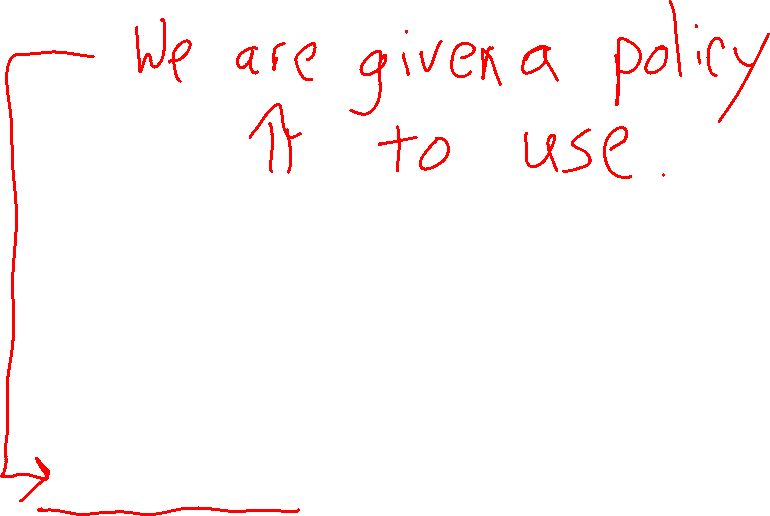 We are given a policy
π to use.